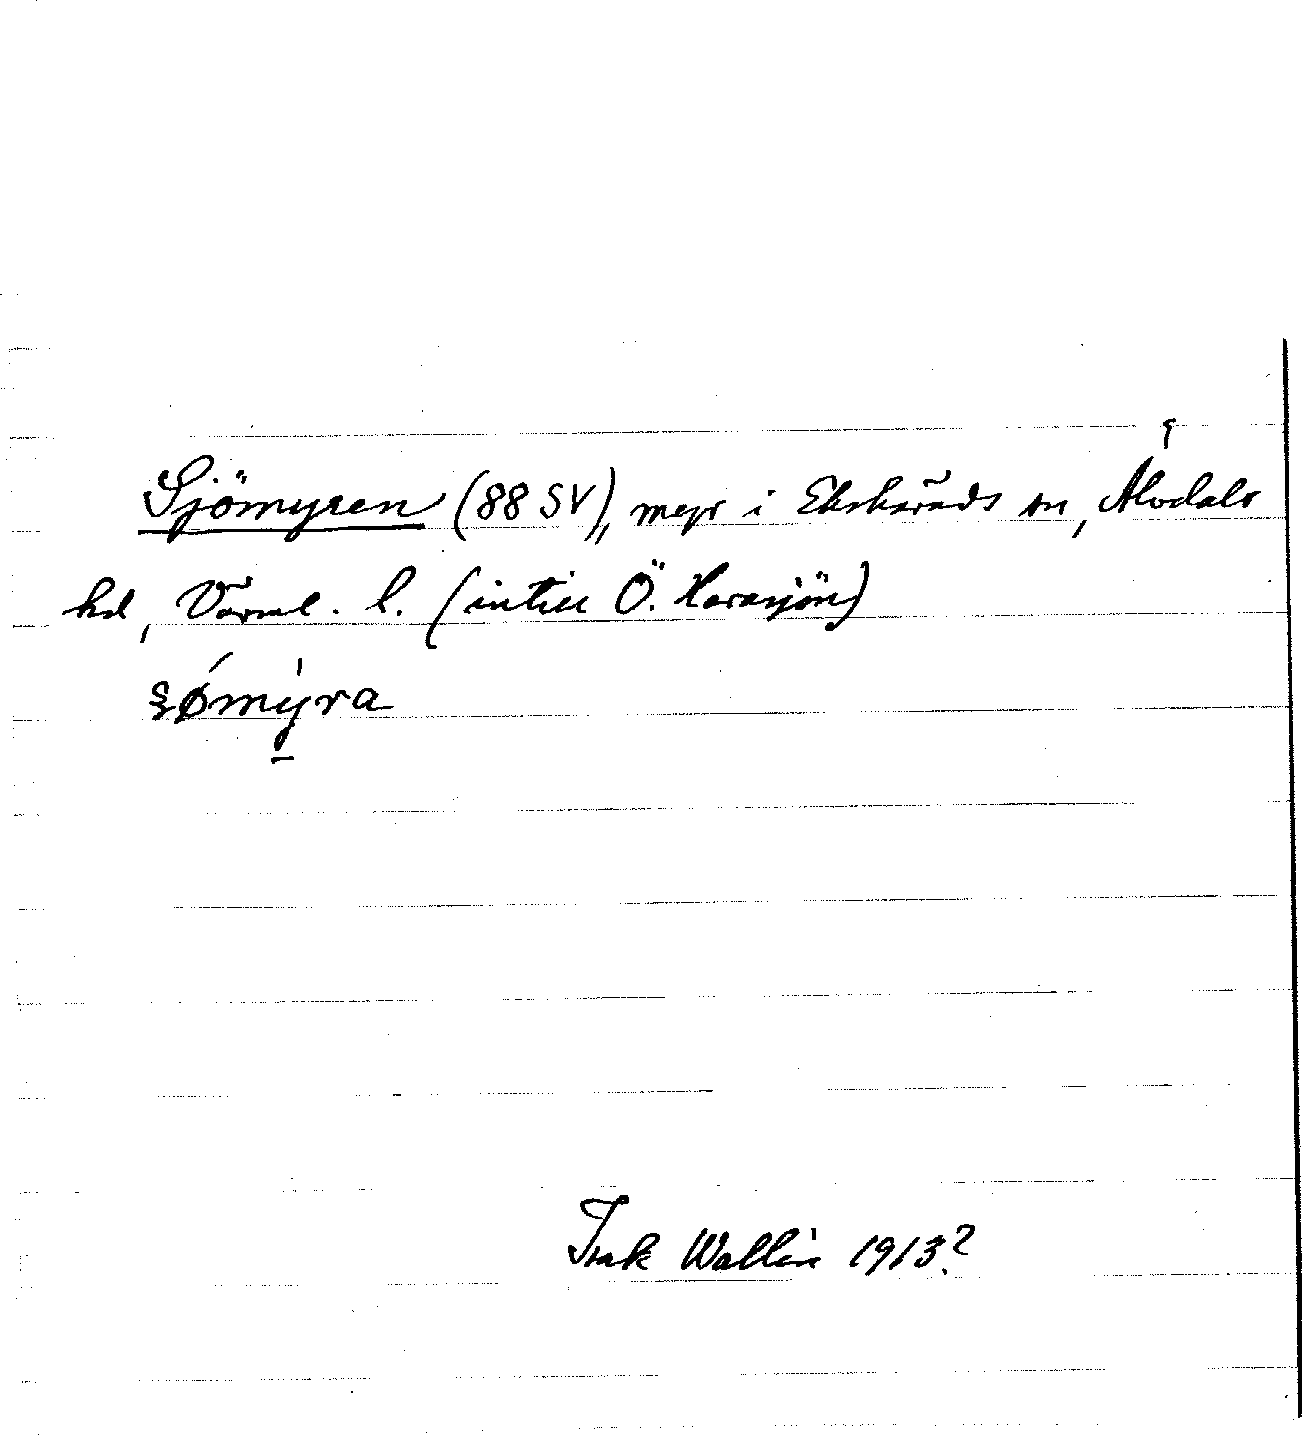 Sjömyren (88 SV), myr i Ekshärads sn, Älvdals
hd, Värml. l. (intill Ö. Harasjön)
ʂǿmýra
Isak Wallin 1913?